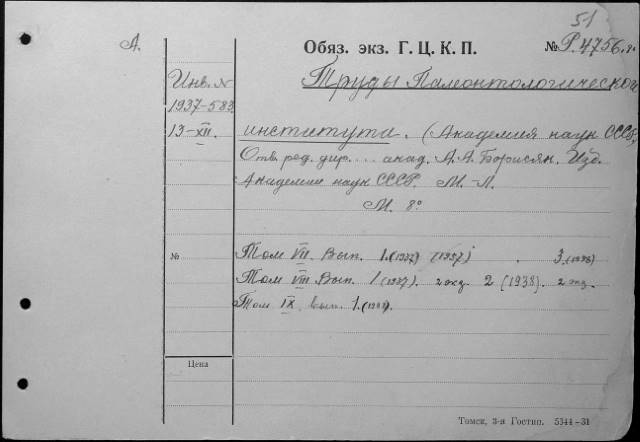 51
А. Обяз. экз. Г. Ц. К. П. № Р.4756.
Инв. N Труды Палеонтологической
1937-583
13-XII. института. (Академия наук СССР)
Отв. ред. дир. ... акад. А. А. Борисяк. Изд.
Академии наук СССР. М.-Л.
М. 8°
№ Том VII. Вып. 1.(1937) (1937) . 3.(1938)
Том VIII. Вып. 1 (1937). 2 экз. 2 (1938). 2 экз.
Том IX. вып. 1.
Цена
Томск, 3-я Гостип. 5344-31